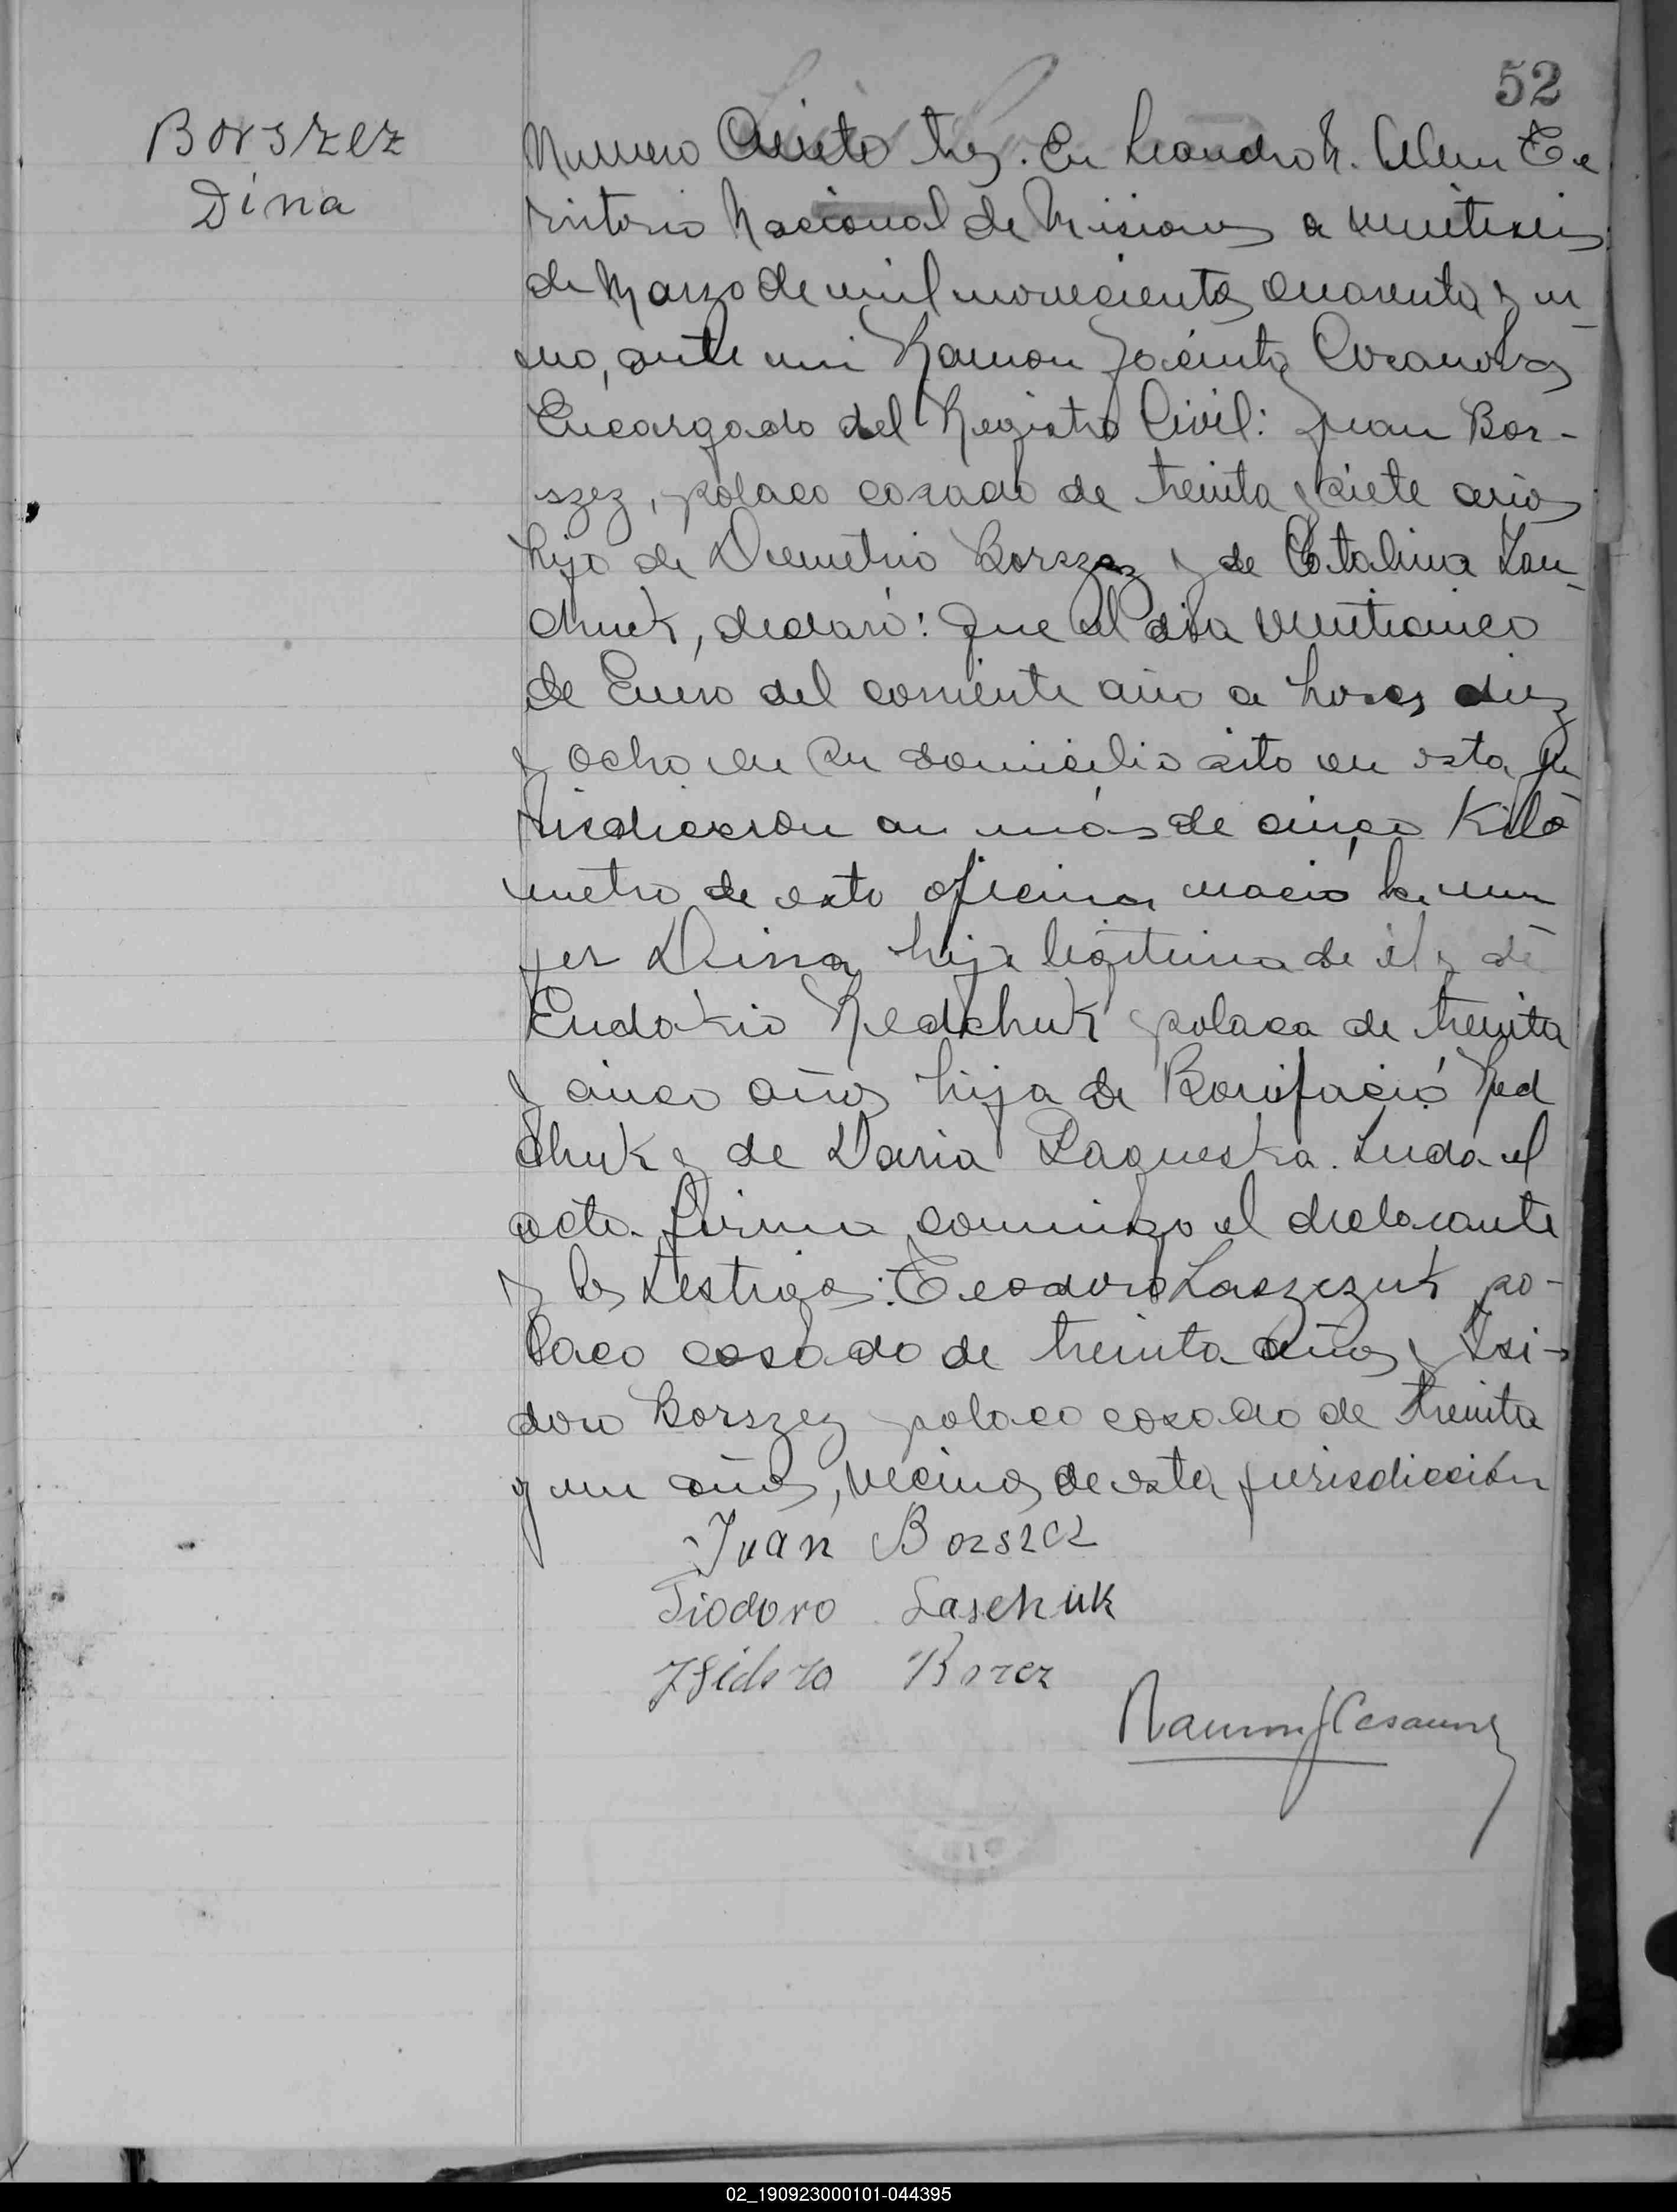 52
Borszez
Dina
Numero Ciento tres. En Leandro N. Alem Te
rritorio Nacional de Misiones a veintiseis
de Marzo de mil novecientos cuarenta y u
no, ante mi Ramon Jacinto Casanova
Encargado del Registro Civil: Juan Bor-
szez, polaco casado de treinta y siete años
hijo de Demetrio Borszez y de Catalina
chuk, declaró: Que el dia veinticinco
de Enero del corriente año a horas diez
y ocho en su domicilio sito en esta ju
risdiccion a más de cinco Kiló
metro de esta oficina nació la mu
jer Dina hija legitima de él y de
Eudokia Redchuk polaca de treinta
y cinco años hija de Bonifacio Red
chuk y de Daria. Leida el
acta firma conmigo el declarante
y los testigos: Teodoro Laszezuk po-
laco casado de treinta años y Isi-
doro Borszez polaco casado de treinta
y un años, vecinos de esta jurisdicción
Iván Borszez
Tiodoro Laschuk
Isidoro Borez
Ramon J Casanova
02_190923000101-044395